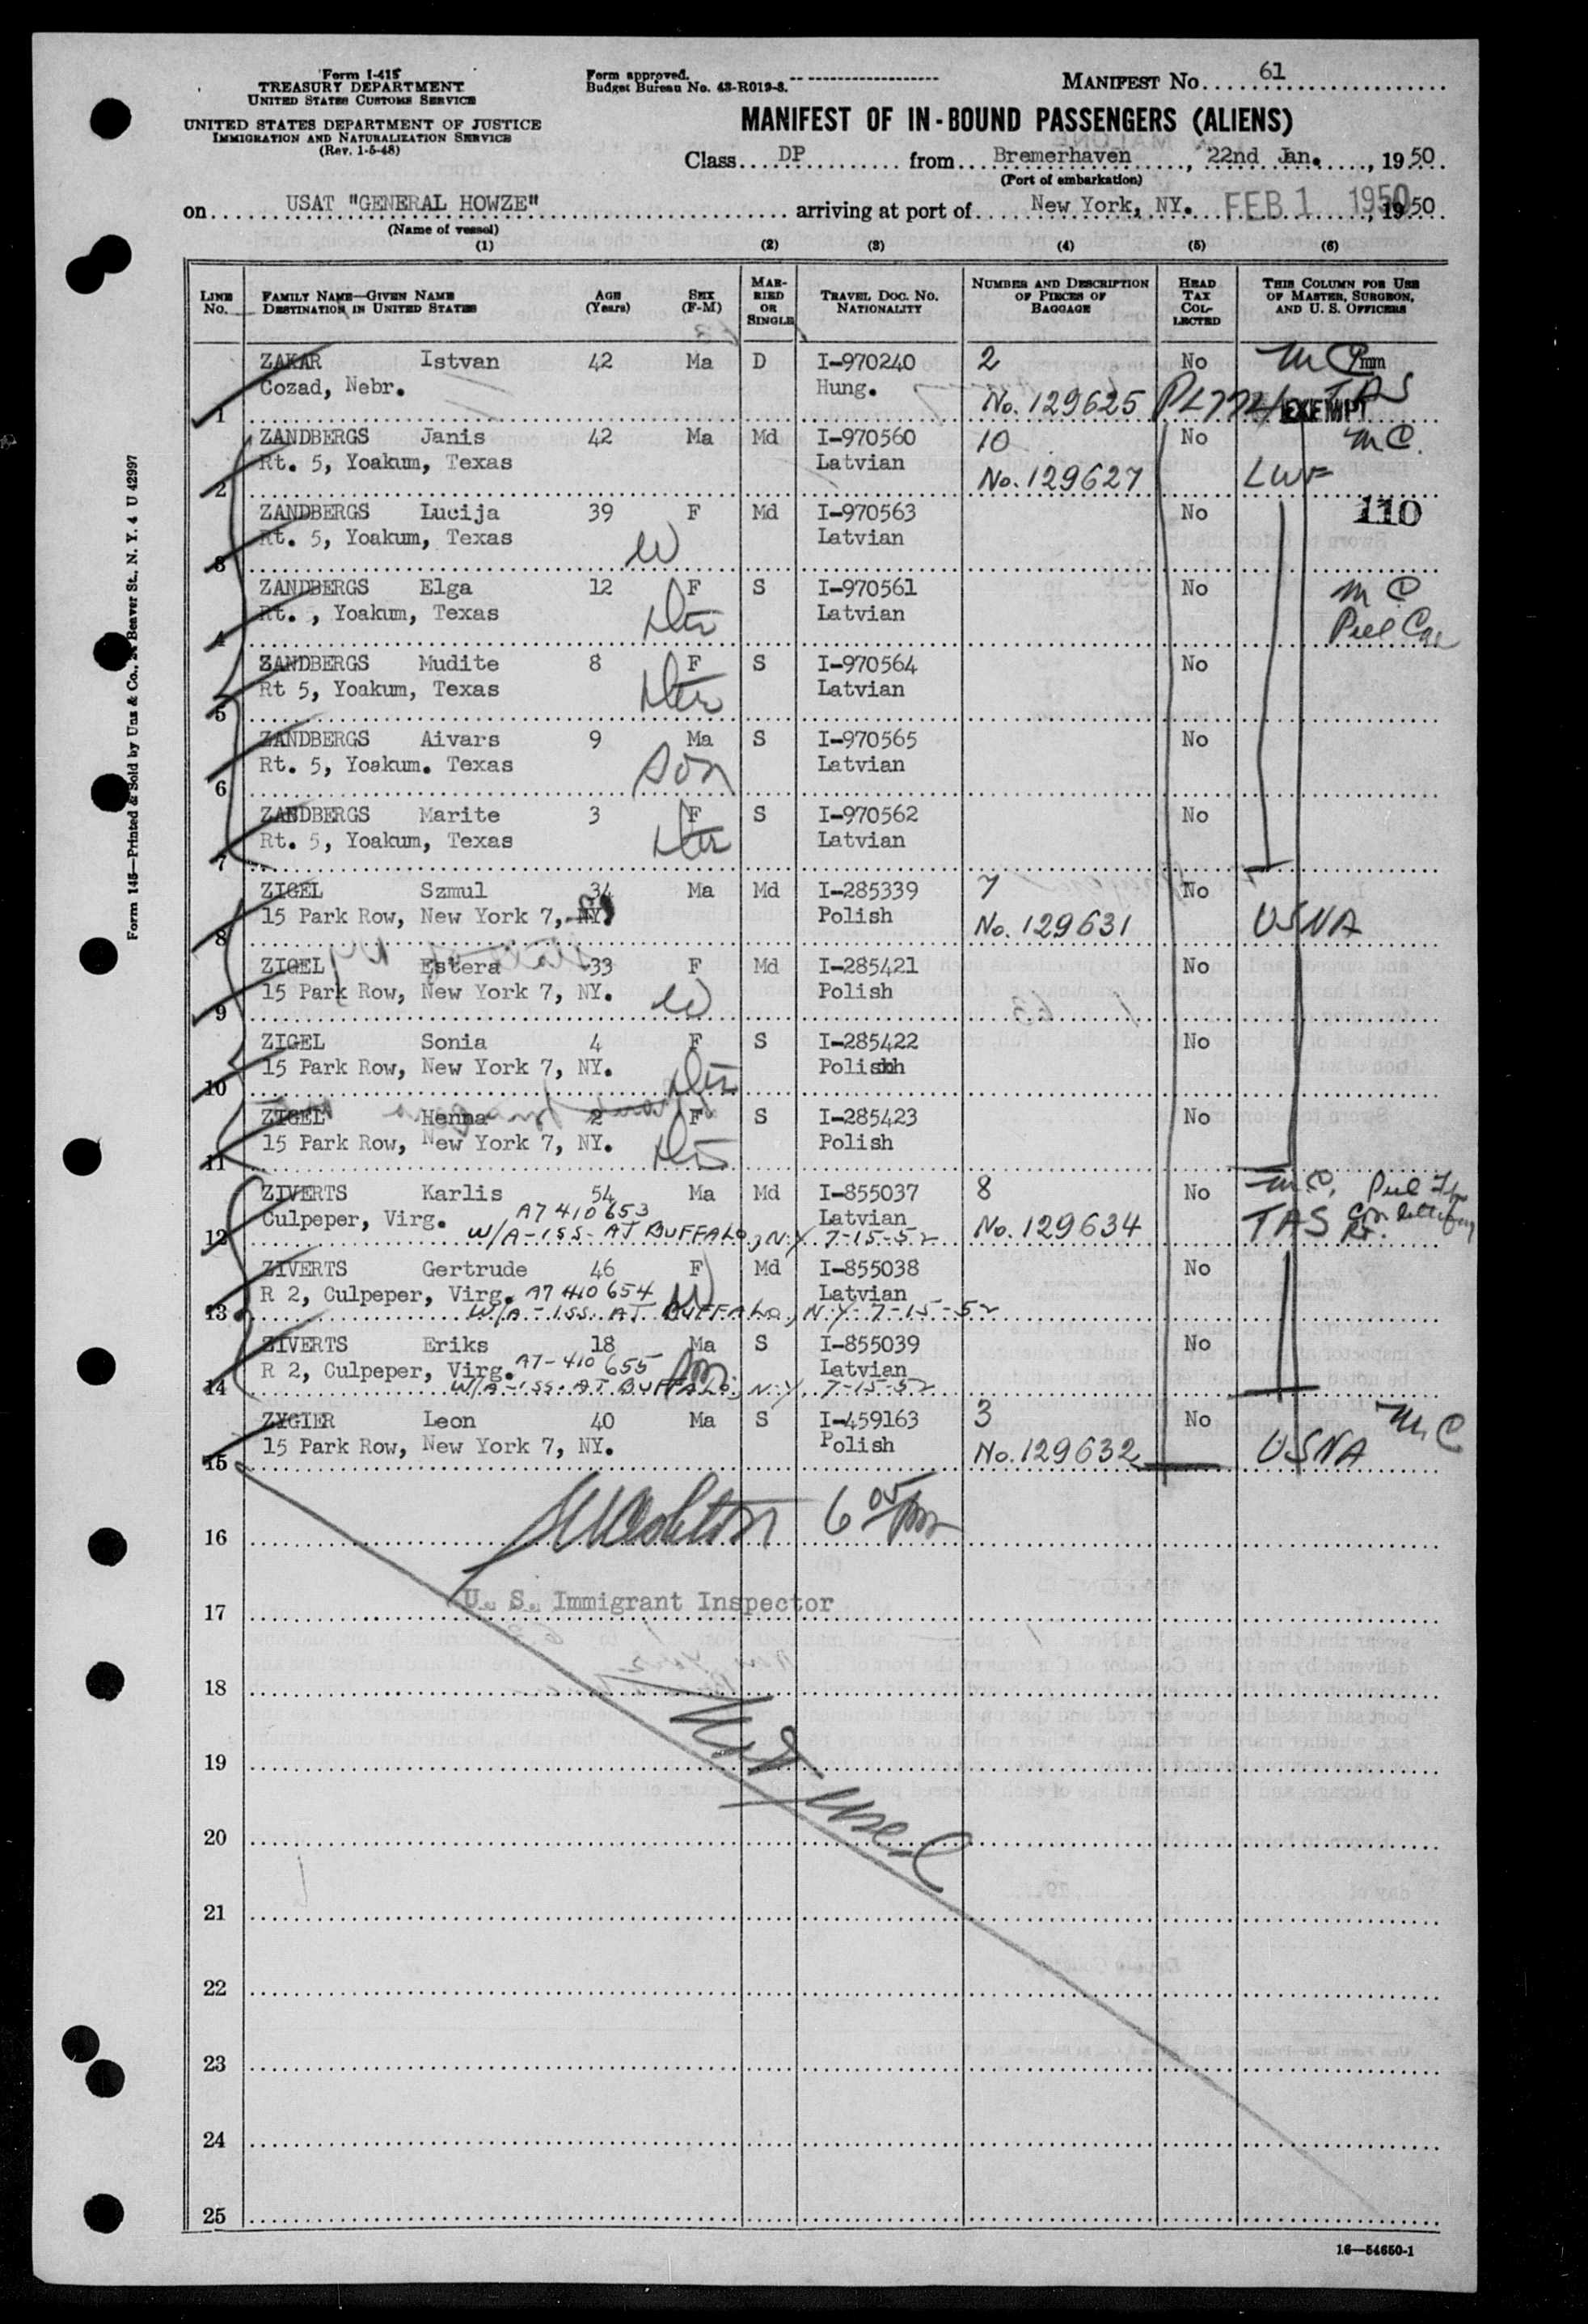 Form I-415
TREASURY DEPARTMENT
UNITED STATES CUSTOMS SERVICE
UNITED STATES DEPARTMENT OF JUSTICE
IMMIGRATION AND NATURALIZATION SERVICE
(Rev. 1-5-48)
Form approved.
Budget Bureau No. 43-R019-3.
MANIFEST No. 61
MANIFEST OF IN-BOUND PASSENGERS (ALIENS)
Class DP from Bremerhaven, 22nd Jan., 1950
(Port of embarkation)
on USAT "GENERAL HOWZE" arriving at port of New York, NY. FEB 1 1950, 1950
(Name of vessel)
(1) (2) (3) (4) (5) (6)
LINE No. FAMILY NAME—GIVEN NAME DESTINATION IN UNITED STATES AGE (Years) SEX (F-M) MARRIED OR SINGLE TRAVEL DOC. NO. NATIONALITY NUMBER AND DESCRIPTION OF PIECES OF BAGGAGE HEAD TAX COLLECTED THIS COLUMN FOR USE OF MASTER, SURGEON, AND U. S. OFFICERS
ZAKAR Istvan 42 Ma D I-970240 2 No
Cozad, Nebr. Hung. No. 129625 TAS
1 EXEMPT
ZANDBERGS Janis 42 Ma Md I-970560 10 No MC
Rt. 5, Yoakum, Texas Latvian
2 No. 129627 LWF
ZANDBERGS Lucija 39 F Md I-970563 No 110
Rt. 5, Yoakum, Texas W Latvian
3
ZANDBERGS Elga 12 F S I-970561 No MC
Rt. , Yoakum, Texas Dtr Latvian
4
ZANDBERGS Mudite 8 F S I-970564 No
Rt 5, Yoakum, Texas Dtr Latvian
5
ZANDBERGS Aivars 9 Ma S I-970565 No
Rt. 5, Yoakum. Texas Son Latvian
6
ZANDBERGS Marite 3 F S I-970562 No
Rt. 5, Yoakum, Texas Dtr Latvian
7
ZIGEL Szmul 34 Ma Md I-285339 7 No
15 Park Row, New York 7, NY. Polish No. 129631 USNA
8
ZIGEL Estera 33 F Md I-285421 No
15 Park Row, New York 7, NY. W Polish
9
ZIGEL Sonia 4 F S I-285422 No
15 Park Row, New York 7, NY. Dtr Polish
10
ZIGEL Henna 2 F S I-285423 No
15 Park Row, New York 7, NY. Dtr Polish
11
ZIVERTS Karlis 54 Ma Md I-855037 8 No MC.
Culpeper, Virg. A7 410 653 Latvian No. 129634 TAS
12 W/A-ISS. AT BUFFALO, N.Y. 7-15-52
ZIVERTS Gertrude 46 F Md I-855038 No
R 2, Culpeper, Virg. A7 410 654 W Latvian
13 W/A-ISS. AT BUFFALO, N.Y. 7-15-52
ZIVERTS Eriks 18 Ma S I-855039 No
R 2, Culpeper, Virg. A7-410 655 Son Latvian
14 W/A-ISS. AT BUFFALO, N.Y. 7-15-52
ZYGIER Leon 40 Ma S I-459163 3 No MC
15 Park Row, New York 7, NY. Polish No. 129632 USNA
15
16 6 05 pm
17 U. S. Immigrant Inspector
18
19 Not used
20
21
22
23
24
25
16—54650-1
Form 145—Printed & Sold by Unz & Co., Beaver St., N. Y. 4 U 42997